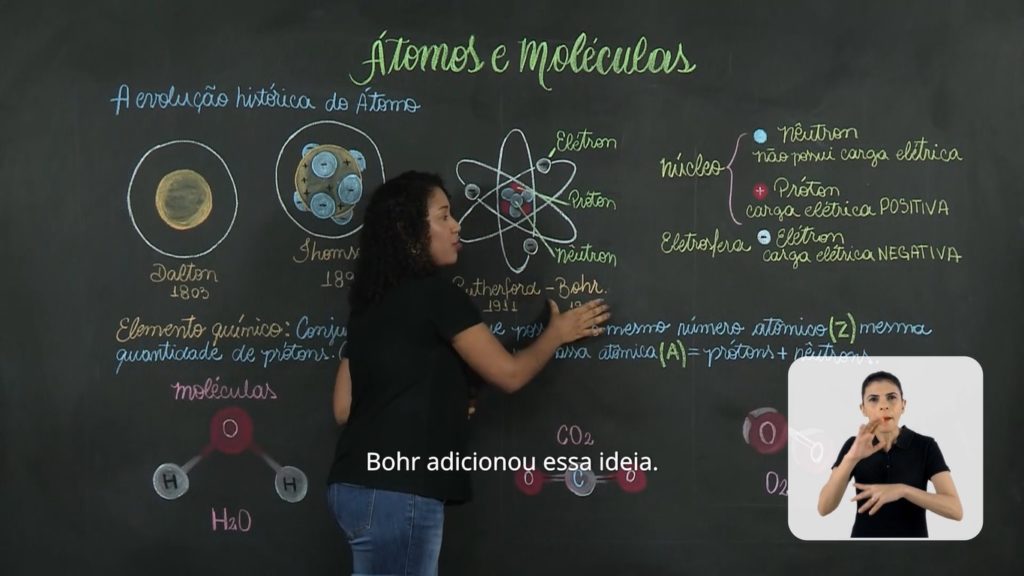 Átomos e Moléculas
A evolução histórica do Átomo
Dalton
1803
Elétron
Próton
Nêutron
Rutherford - Bohr.
1911
Núcleo
Nêutron
não possui carga elétrica
+
Próton
carga elétrica POSITIVA
Eletrosfera
-
Elétron
carga elétrica NEGATIVA
Elemento químico: mesmo número atômico (Z) mesma
quantidade de prótons. atômica (A) = prótons + nêutrons.
moléculas
O
H H
H2O
CO2
O C O
O O
O2
Bohr adicionou essa ideia.